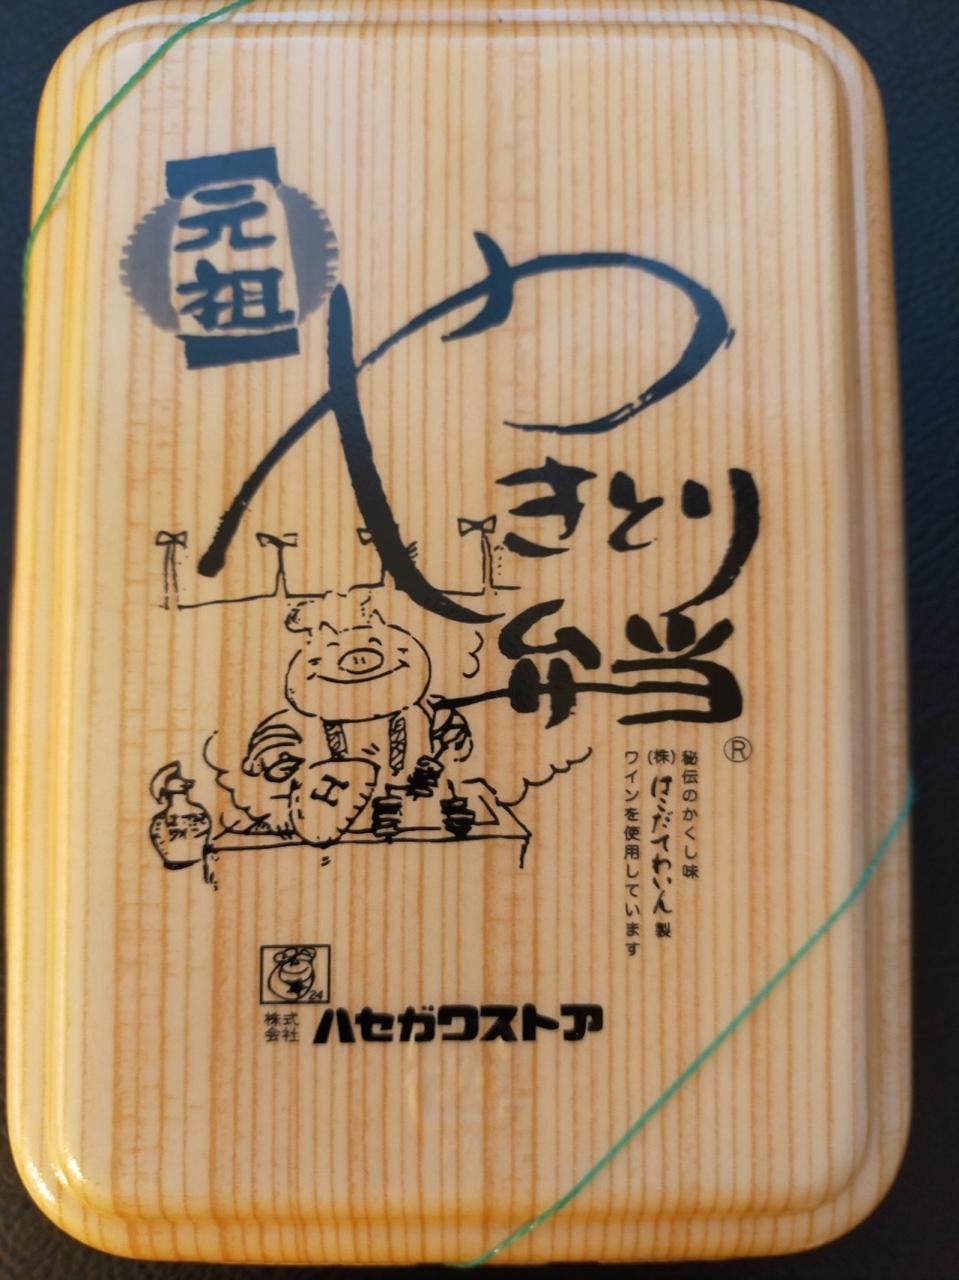 元祖
やきとり
弁当
®
秘伝のかくし味
(株)はこだてわいん製
ワインを使用しています
H
24
株式会社
ハセガワストア